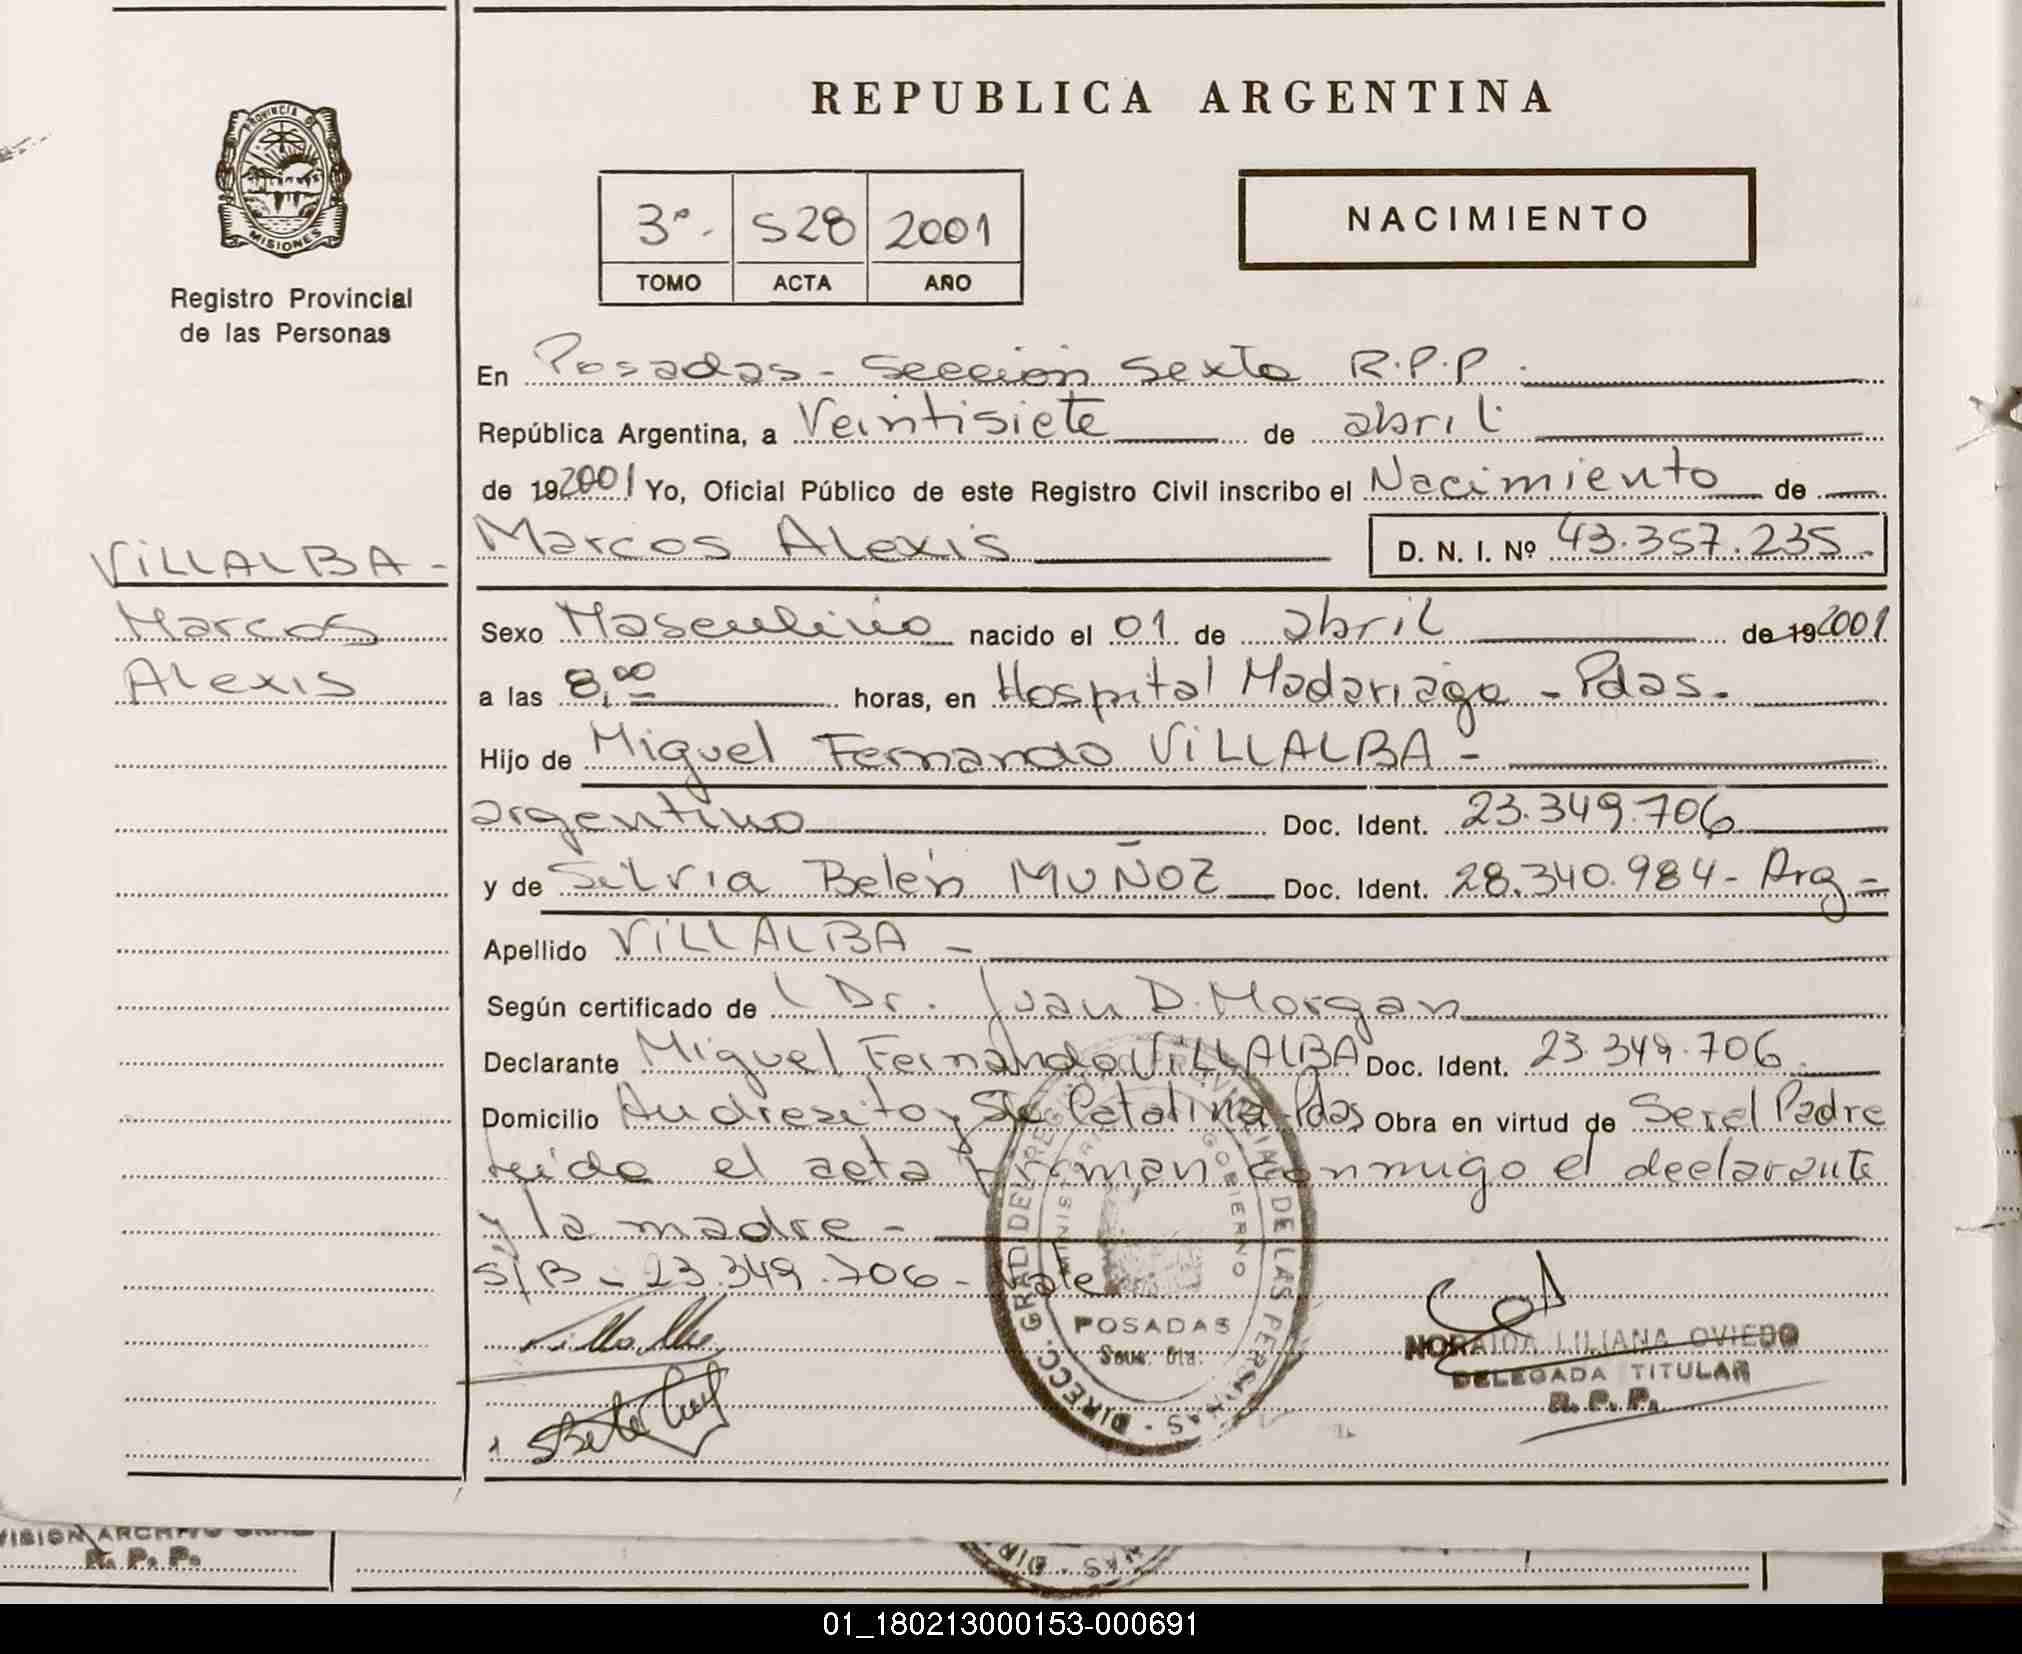 REPUBLICA ARGENTINA
PROVINCIA D
MISIONES
Registro Provincial
de las Personas
3º. 528 2001
TOMO ACTA AÑO
NACIMIENTO
En Posadas - Sección Sexta R.P.P.
República Argentina, a Veintisiete de abril
de 19 2001 Yo, Oficial Público de este Registro Civil inscribo el Nacimiento de
VILLALBA -
Marcos Alexis D. N. I. Nº 43.357.235.
Marcos
Alexis
Sexo Masculino nacido el 01 de abril de 19 2001
a las 8,00 horas, en Hospital Madariaga - Pdas.
Hijo de Miguel Fernando VILLALBA -
argentino Doc. Ident. 23.349.706
y de Silvia Belén MUÑOZ Doc. Ident. 28.340.984 - Arg -
Apellido VILLALBA -
Según certificado de Dr. Juan D. Morgan
Declarante Miguel Fernando VILLALBA Doc. Ident. 23.349.706
Domicilio Andresito y Sta Catalina - Pdas Obra en virtud de Ser el Padre
leida el acta firman conmigo el declarante
y la madre -
S/B - 23.349.706 - Vale
DIRECC. GRAL DEL REGISTRO PROVINCIAL DE LAS PERSONAS
MINISTERIO GOBIERNO
POSADAS
Secc. 6ta.
NORAIDA LILIANA OVIEDO
DELEGADA TITULAR
R. P. P.
VISION ARCHIVO GRAL
R. P. P.
01_180213000153-000691